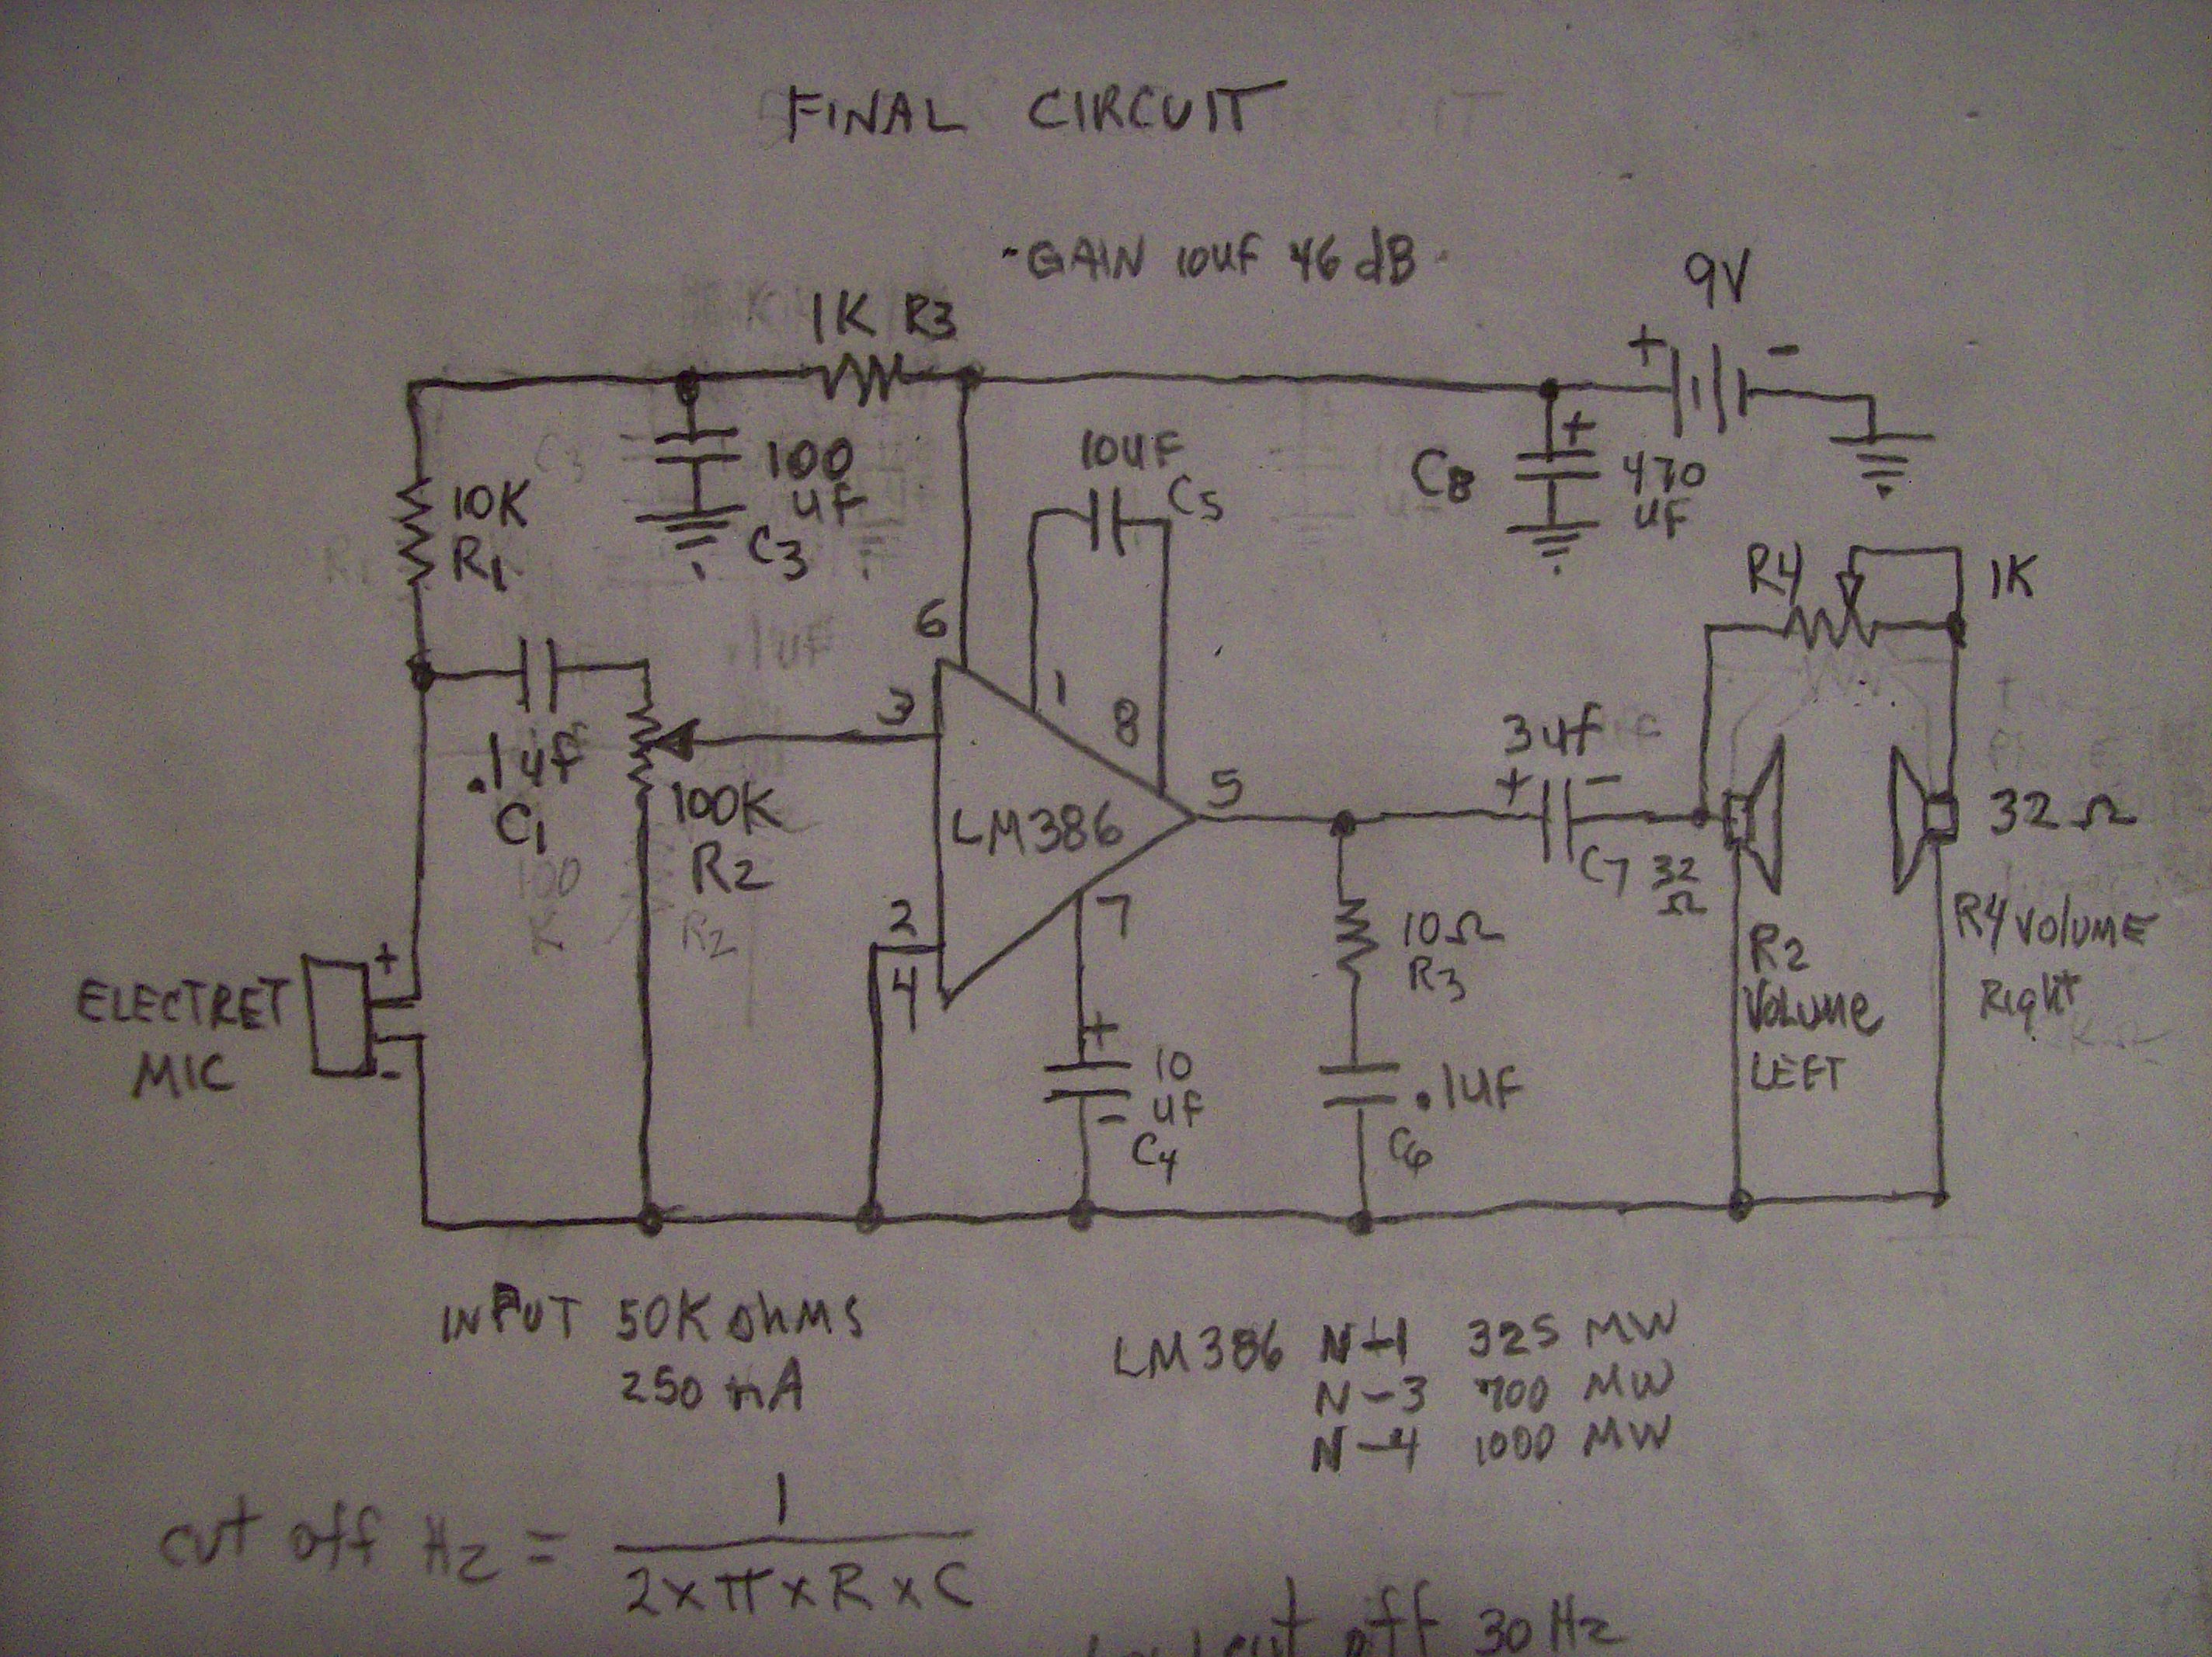 FINAL CIRCUIT
-GAIN 10uF 46 dB
9V
+ -
1K R3
10K
R1
100
uF
C3
10uF
C5
C8
+
470
uF
R4
1K
6
1
8
3
.1uF
C1
100K
R2
LM386
5
3uf
+ -
C7
32
Ω
32 Ω
2
4
7
10Ω
R3
R2
VOLUME
LEFT
R4 VOLUME
Right
ELECTRET
MIC
+
-
+
10
uF
-
C4
.1uF
C6
INPUT 50K OhMS
250 nA
LM386 N-1 325 MW
N-3 700 MW
N-4 1000 MW
cut off Hz = 1
2 x π x R x C
cut off 30 Hz